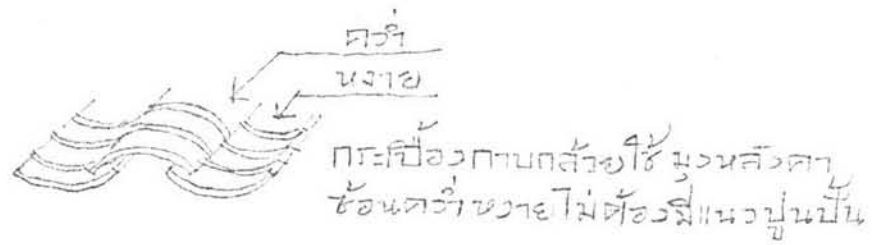 คว่ำ
หงาย
กระเบื้องกาบกล้วยใช้ มุงหลังคา
ซ้อนคว่ำหงายไม่ต้องมีแนวปูนปั้น